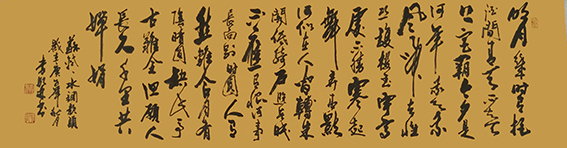 明月幾時有把
酒問青天不知天
上宫闕今夕是
何年我欲乘
風歸去又恐
瓊樓玉宇高
處不勝寒起
舞弄清影
何似在人間轉朱
閣低綺户照無眠
不應有恨何事
長向别時圓人有
悲歡離合月有
陰晴圓缺此事
古難全但願人
長久千里共
嬋娟
蘇軾水調歌頭
歲在庚寅秋月
李書